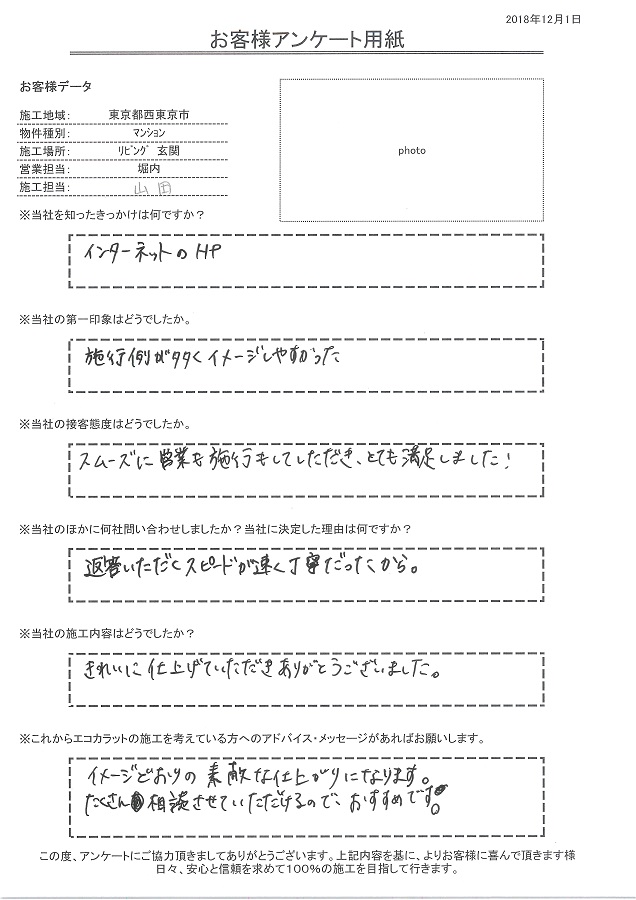 2018年12月1日
お客様アンケート用紙
お客様データ
施工地域: 東京都西東京市
物件種別: ﾏﾝｼｮﾝ
施工場所: ﾘﾋﾞﾝｸﾞ 玄関
営業担当: 堀内
施工担当: 山田
photo
※当社を知ったきっかけは何ですか？
インターネットのHP
※当社の第一印象はどうでしたか。
施行例が多くイメージしやすかった
※当社の接客態度はどうでしたか。
スムーズに営業も施行もしていただき、とても満足しました！
※当社のほかに何社問い合わせしましたか？当社に決定した理由は何ですか？
返答いただくスピードが速く丁寧だったから。
※当社の施工内容はどうでしたか？
きれいに仕上げていただきありがとうございました。
※これからエコカラットの施工を考えている方へのアドバイス・メッセージがあればお願いします。
イメージどおりの素敵な仕上がりになります。
たくさん相談させていただけるので、おすすめです。
この度、アンケートにご協力頂きましてありがとうございます。上記内容を基に、よりお客様に喜んで頂きます様
日々、安心と信頼を求めて100％の施工を目指して行きます。